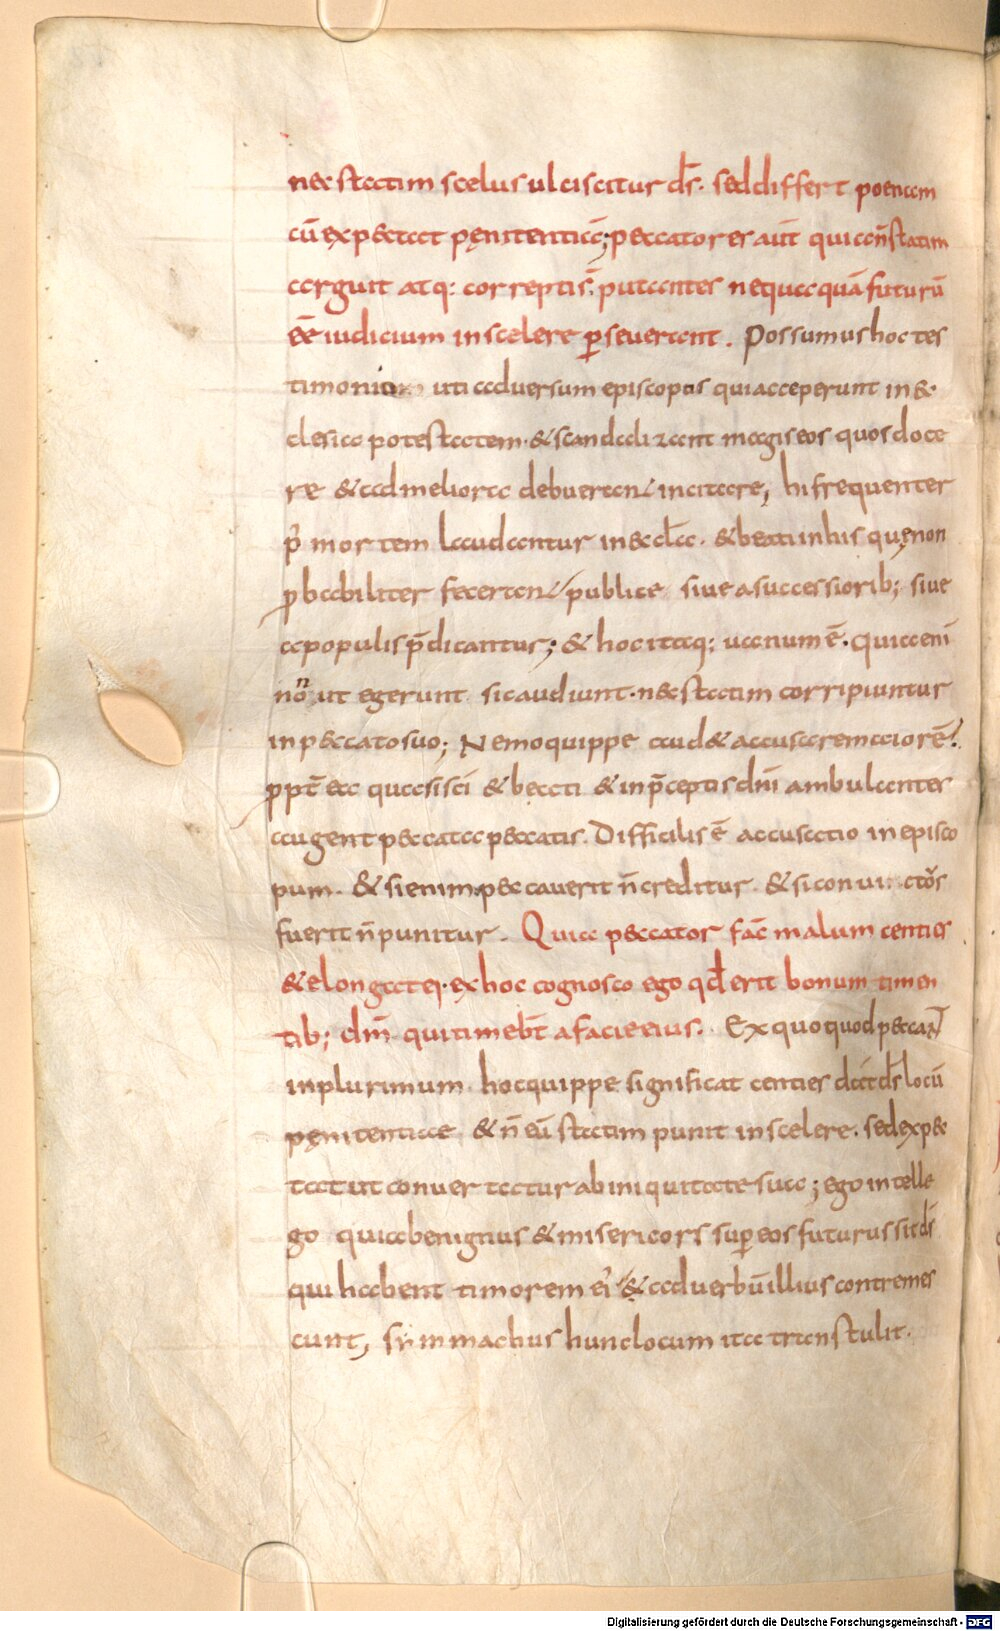 nec statim scelus ulciscitur d̄s. sed differt poenam
cū expectat pęnitentiā; peccatores aūt quia n̄ statim
arguit atq: correptis, putantes nequaquā futurū
eē iudicium in scelere p̱seuerant. Possumus hoc tes
timonium uti aduersum episcopus qui acceperunt in ec
clesia potestatem & scandalizant magis eos quos doce
re & ad meliora debuerant incitare, hi frequenter
p̄ mortem laudantur in eccl̄a. & beati in his quę non
p̱babiliter fecerant publice siue a successiorib; siue
a populis p̄dicantur; & hoc itaq: uanum ē. quia enī
non ut egerunt sic audiunt. nec statim corripiuntur
in peccato suo; Nemo quippe aud& accusare maiorē.
p̱pt̄ ea quasi sc̄i & beati & in p̄ceptis dn̄i ambulantes
augent peccata peccatis. Difficilis ē accusatio in episco
pum. & si enim peccauerit n̄ creditur. & si conui ctus
fuerit n̄ punitur. Quia peccator fac̄ malum centies
& elongat ei. ex hoc cognosco ego qd̄ erit bonum timen
tib; dm̄. qui timebt̄ a facie eius. Ex quo quod peccat
in plurimum. hoc quippe significat centies dat d̄s locū
pęnitentiae & n̄ eū statim punit in scelere. sed expec
tat ut conuertatur ab iniquitate sua; ego intelle
go quia benignus & misericors sup̱ eos futurus sit d̄s
qui habent timorem ei' & ad uerbū illius contremes
cunt, symmachus hunc locum ita transtulit.
Digitalisierung gefördert durch die Deutsche Forschungsgemeinschaft - DFG